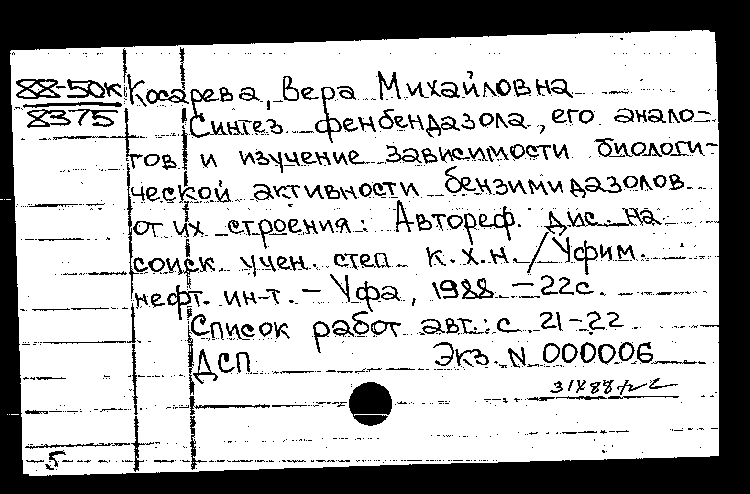 88-50к Косарева, Вера Михайловна
8375 Синтез фенбендазола, его анало-
гов и изучение зависимости биологи-
ческой активности бензимидазолов
от их строения: Автореф. дис. на
соиск. учен. степ. к.х.н. / Уфим.
нефт. ин-т. - Уфа, 1988. - 22с.
Список работ авт.: с 21-22
ДСП Экз. N 000006
5